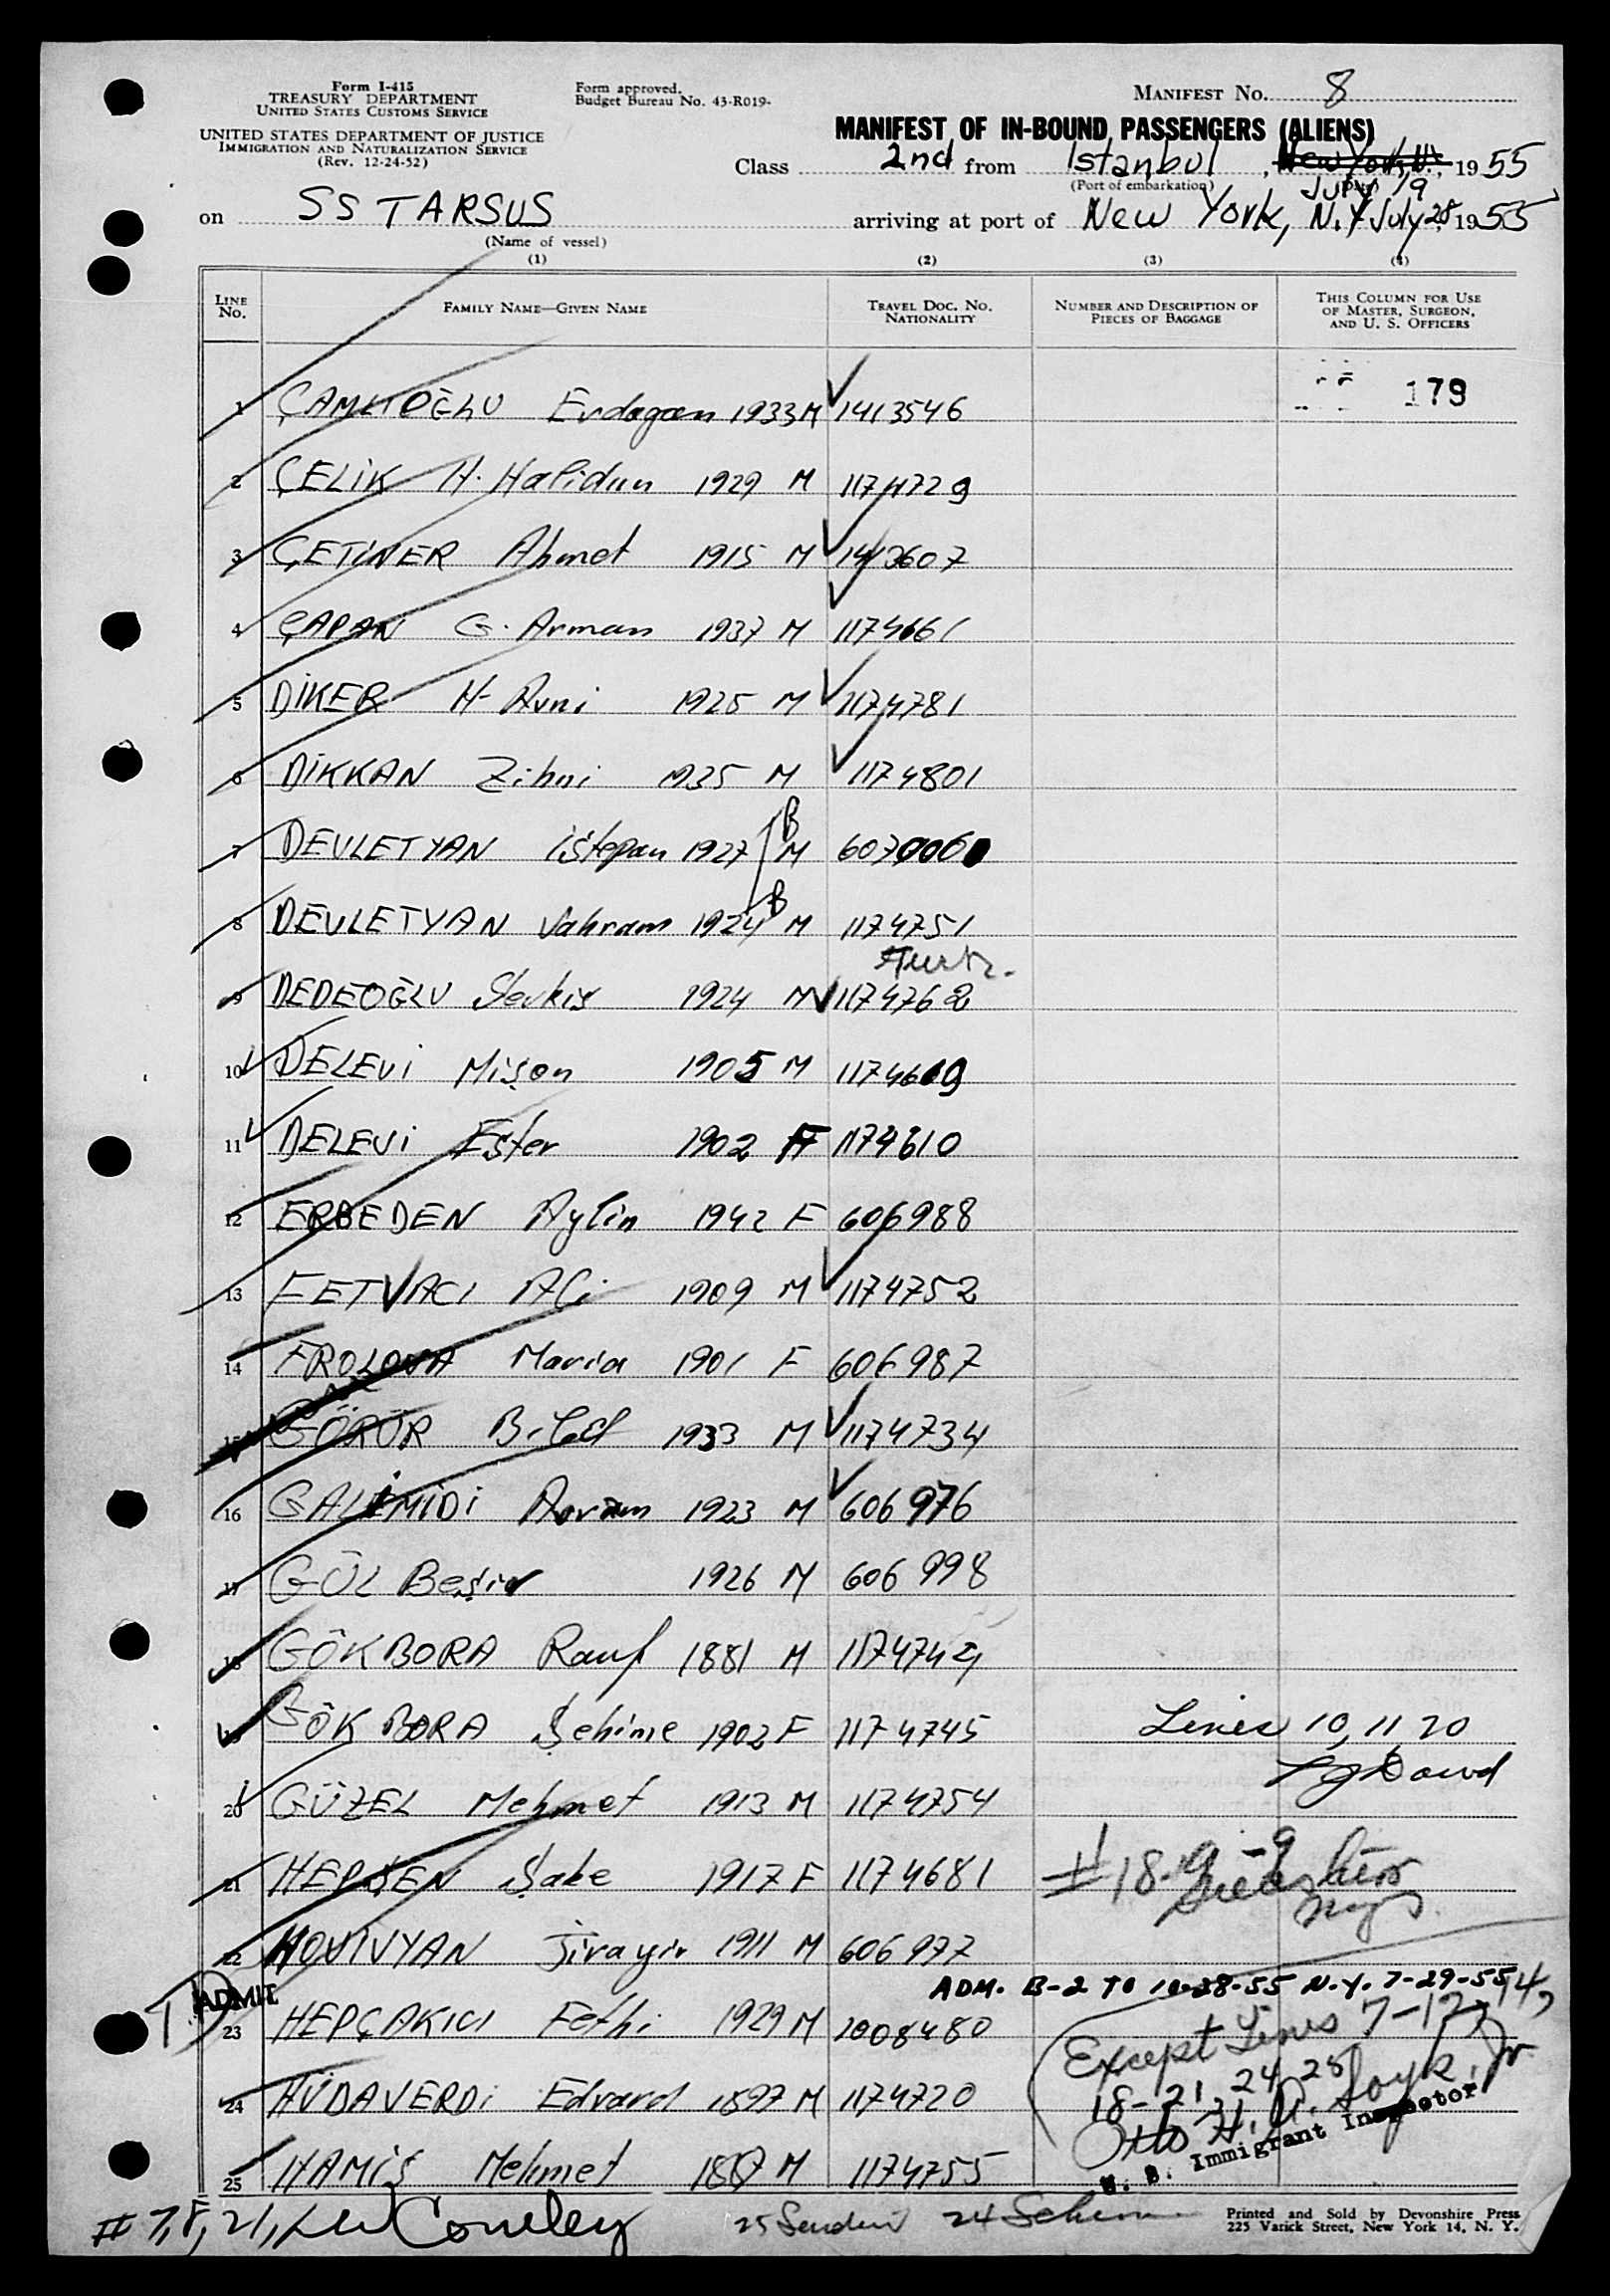 Form I-415
TREASURY DEPARTMENT
UNITED STATES CUSTOMS SERVICE
UNITED STATES DEPARTMENT OF JUSTICE
IMMIGRATION AND NATURALIZATION SERVICE
(Rev. 12-24-52)
Form approved.
Budget Bureau No. 43-R019-
MANIFEST NO. 8
MANIFEST OF IN-BOUND PASSENGERS (ALIENS)
Class 2nd from Istanbul, New York, N.Y., 1955
(Port of embarkation) July 19
on SS TARSUS arriving at port of New York, N.Y July 28, 1955
(Name of vessel)
(1) (2) (3) (4)
LINE No. FAMILY NAME—GIVEN NAME TRAVEL DOC. NO. NATIONALITY NUMBER AND DESCRIPTION OF PIECES OF BAGGAGE THIS COLUMN FOR USE OF MASTER, SURGEON, AND U. S. OFFICERS
179
1 Erdogan 1933 M 1413546
2 ÇELİK H. Halidun 1929 M 1174729
3 ÇETİNER Ahmet 1915 M 1413607
4 ÇAPAN G. Arman 1937 M 1174661
5 DİKER H. Avni 1925 M 1174781
6 DİKKAN Zihni 1935 M 1174801
7 DEVLETYAN İstepan 1927 B M
8 DEVLETYAN Vahram 1924 B M 1174751
Turk.
9 DEDEOĞLU 1924 M 1174762
10 DELEVİ Mişon 1905 M 1174609
11 DELEVİ Ester 1902 F 1174610
12 ERBEDEN Aylin 1942 F 606988
13 FETVACI Ali 1909 M 1174752
14 FROLOVA Maria 1901 F 606987
15 1933 M 1174734
16 GALİMİDİ Avram 1923 M 606976
17 GÜL Beşir 1926 M 606998
18 GÖKBORA Rauf 1881 M 1174744
19 GÖKBORA Şehime 1902 F 1174745
Lines 10, 11, 20
20 GÜZEL Mehmet 1913 M 1174754
21 HEPŞEN Şake 1917 F 1174681
22 Jirayir 1911 M 606977
ADM. B-2 TO 10-28-55 N.Y. 7-29-55
ADMIT
23 HEPÇAKICI Fethi 1929 M 1008480
Except Lines 7-12, 14,
18-21, 24, 25
24 HÜDAVERDİ Edvard 1897 M 1174720
U. S. Immigrant Inspector
25 HAMİŞ Mehmet M 1174755
# 7, 8, 21,
25 24
Printed and Sold by Devonshire Press
225 Varick Street, New York 14, N. Y.